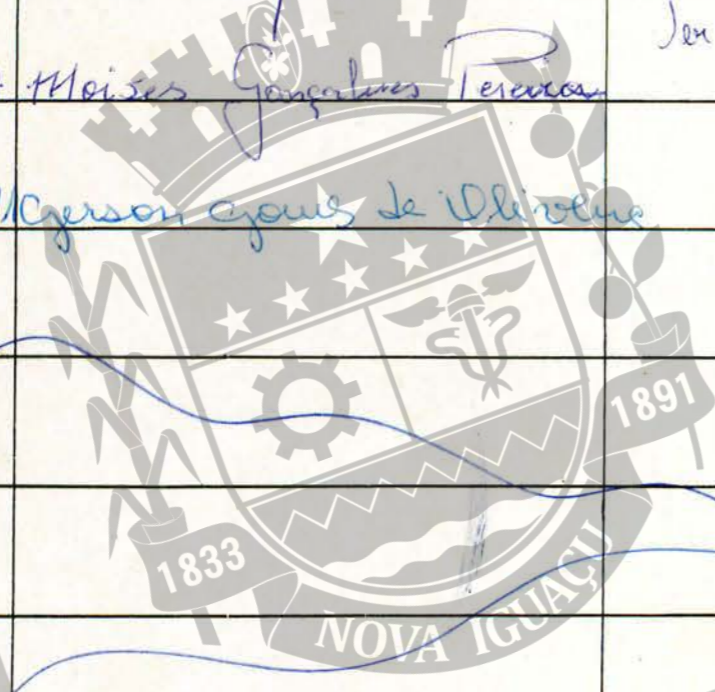 Moises Gonçalves Pereira
Gerson Gomes de Oliveira
1891
1833
NOVA IGUAÇU